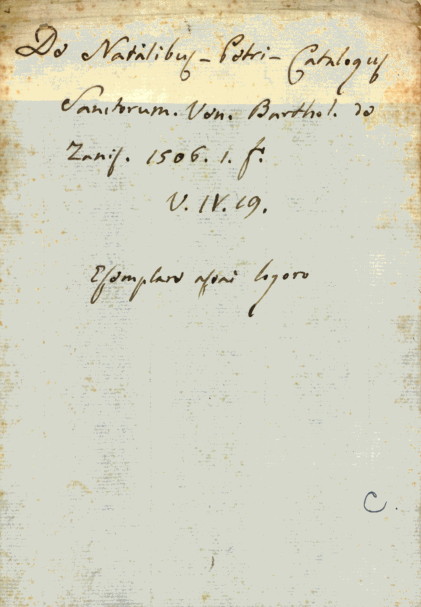 De Natalibus - Petri - Catalogus
Sanctorum. Ven. Barthol. de
Zanis. 1506. 1. f.
V. IV. 19.
Esemplare assai logoro
C.